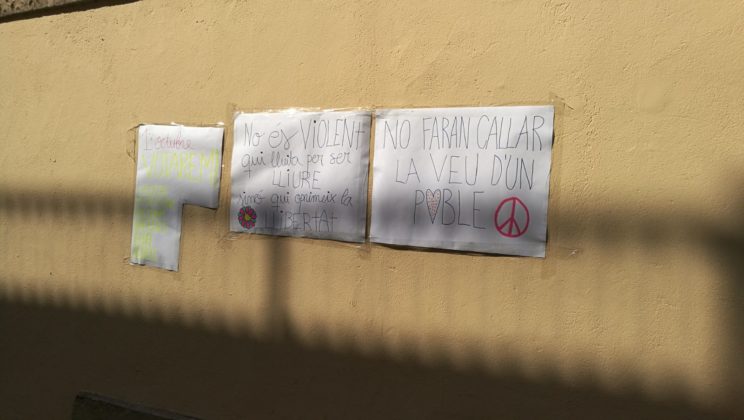 1 octubre
No és VIOLENT
qui lluita per ser
LLIURE
sinó qui oprimeix la
LLIBERTAT
NO FARAN CALLAR
LA VEU D'UN
POBLE